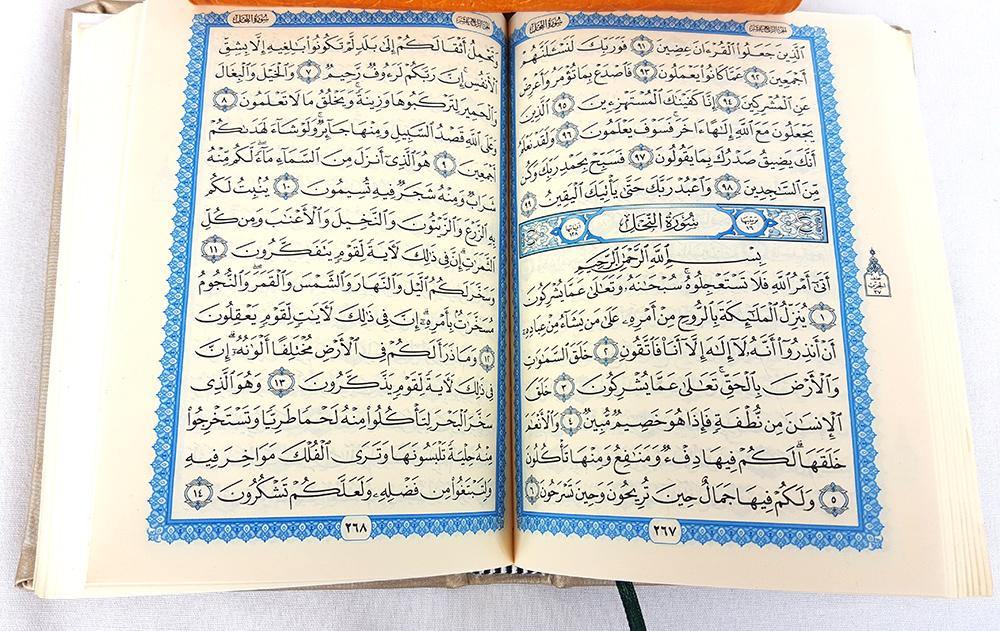 سُورَةُ الحِجْرِ
الجُزْءُ الرَّابِعَ عَشَرَ
الَّذِينَ جَعَلُوا۟ الْقُرْءَانَ عِضِينَ ٩١ فَوَرَبِّكَ لَنَسْـَٔلَنَّهُمْ
أَجْمَعِينَ ٩٢ عَمَّا كَانُوا۟ يَعْمَلُونَ ٩٣ فَاصْدَعْ بِمَا تُؤْمَرُ وَأَعْرِضْ
عَنِ الْمُشْرِكِينَ ٩٤ إِنَّا كَفَيْنَٰكَ الْمُسْتَهْزِءِينَ ٩٥ الَّذِينَ
يَجْعَلُونَ مَعَ اللَّهِ إِلَٰهًا ءَاخَرَ فَسَوْفَ يَعْلَمُونَ ٩٦ وَلَقَدْ نَعْلَمُ
أَنَّكَ يَضِيقُ صَدْرُكَ بِمَا يَقُولُونَ ٩٧ فَسَبِّحْ بِحَمْدِ رَبِّكَ وَكُن
مِّنَ السَّٰجِدِينَ ٩٨ وَاعْبُدْ رَبَّكَ حَتَّىٰ يَأْتِيَكَ الْيَقِينُ ٩٩
سُورَةُ النَّحْلِ
بِسْمِ اللَّهِ الرَّحْمَٰنِ الرَّحِيمِ
أَتَىٰٓ أَمْرُ اللَّهِ فَلَا تَسْتَعْجِلُوهُ سُبْحَٰنَهُۥ وَتَعَٰلَىٰ عَمَّا يُشْرِكُونَ
١ يُنَزِّلُ الْمَلَٰٓئِكَةَ بِالرُّوحِ مِنْ أَمْرِهِۦ عَلَىٰ مَن يَشَآءُ مِنْ عِبَادِهِۦٓ
أَنْ أَنذِرُوٓا۟ أَنَّهُۥ لَآ إِلَٰهَ إِلَّآ أَنَا۠ فَاتَّقُونِ ٢ خَلَقَ السَّمَٰوَٰتِ
وَالْأَرْضَ بِالْحَقِّ تَعَٰلَىٰ عَمَّا يُشْرِكُونَ ٣ خَلَقَ
الْإِنسَٰنَ مِن نُّطْفَةٍ فَإِذَا هُوَ خَصِيمٌ مُّبِينٌ ٤ وَالْأَنْعَٰمَ
خَلَقَهَا لَكُمْ فِيهَا دِفْءٌ وَمَنَٰفِعُ وَمِنْهَا تَأْكُلُونَ
٥ وَلَكُمْ فِيهَا جَمَالٌ حِينَ تُرِيحُونَ وَحِينَ تَسْرَحُونَ ٦
٢٦٧
سُورَةُ النَّحْلِ
الجُزْءُ الرَّابِعَ عَشَرَ
وَتَحْمِلُ أَثْقَالَكُمْ إِلَىٰ بَلَدٍ لَّمْ تَكُونُوا۟ بَٰلِغِيهِ إِلَّا بِشِقِّ
الْأَنفُسِ إِنَّ رَبَّكُمْ لَرَءُوفٌ رَّحِيمٌ ٧ وَالْخَيْلَ وَالْبِغَالَ
وَالْحَمِيرَ لِتَرْكَبُوهَا وَزِينَةً وَيَخْلُقُ مَا لَا تَعْلَمُونَ ٨
وَعَلَى اللَّهِ قَصْدُ السَّبِيلِ وَمِنْهَا جَآئِرٌ وَلَوْ شَآءَ لَهَدَىٰكُمْ
أَجْمَعِينَ ٩ هُوَ الَّذِىٓ أَنزَلَ مِنَ السَّمَآءِ مَآءً لَّكُم مِّنْهُ
شَرَابٌ وَمِنْهُ شَجَرٌ فِيهِ تُسِيمُونَ ١٠ يُنۢبِتُ لَكُم
بِهِ الزَّرْعَ وَالزَّيْتُونَ وَالنَّخِيلَ وَالْأَعْنَٰبَ وَمِن كُلِّ
الثَّمَرَٰتِ إِنَّ فِى ذَٰلِكَ لَءَايَةً لِّقَوْمٍ يَتَفَكَّرُونَ ١١
وَسَخَّرَ لَكُمُ الَّيْلَ وَالنَّهَارَ وَالشَّمْسَ وَالْقَمَرَ وَالنُّجُومُ
مُسَخَّرَٰتٌۢ بِأَمْرِهِۦٓ إِنَّ فِى ذَٰلِكَ لَءَايَٰتٍ لِّقَوْمٍ يَعْقِلُونَ
١٢ وَمَا ذَرَأَ لَكُمْ فِى الْأَرْضِ مُخْتَلِفًا أَلْوَٰنُهُۥٓ إِنَّ
فِى ذَٰلِكَ لَءَايَةً لِّقَوْمٍ يَذَّكَّرُونَ ١٣ وَهُوَ الَّذِى
سَخَّرَ الْبَحْرَ لِتَأْكُلُوا۟ مِنْهُ لَحْمًا طَرِيًّا وَتَسْتَخْرِجُوا۟
مِنْهُ حِلْيَةً تَلْبَسُونَهَا وَتَرَى الْفُلْكَ مَوَاخِرَ فِيهِ
وَلِتَبْتَغُوا۟ مِن فَضْلِهِۦ وَلَعَلَّكُمْ تَشْكُرُونَ ١٤
٢٦٨